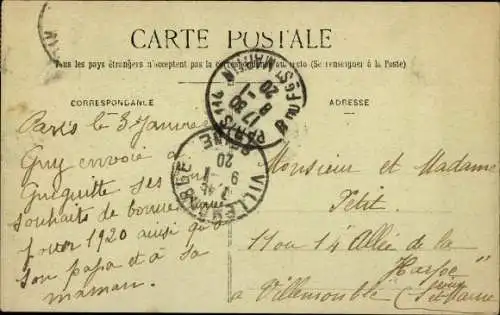 CARTE POSTALE
Tous les pays étrangers n'acceptent pas la correspondance au recto (Se renseigner à la Poste)
CORRESPONDANCE
ADRESSE
PARIS 114
R DU Fg ST MARTIN
17 30
8 - 1
20
VILLEMOMBLE
SEINE
7 45
9 - 1
20
Paris le 3 Janvier
Guy envoie à
Guiguitte ses
souhaits de bonne année
pour 1920 ainsi qu'à
son papa et à sa
maman.
Monsieur et Madame
Petit
11 ou 14 Allée de la
Harpe
à Villemomble (Seine